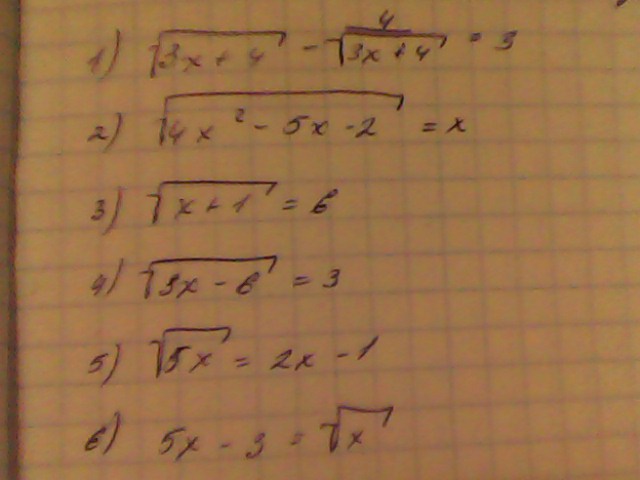 1) √(3x+4) - 4/√(3x+4) = 3
2) √(4x² - 5x - 2) = x
3) √(x+1) = 6
4) √(3x-6) = 3
5) √(5x) = 2x - 1
6) 5x - 3 = √x